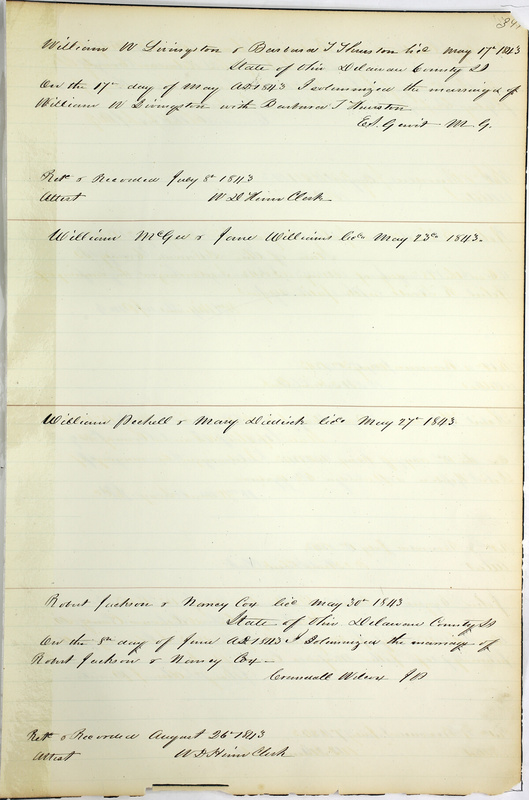 William W Livingston & Barbara T Thurston licd May 17th 1843
State of Ohio Delaware County SS
On the 17th day of May AD 1843 I solemnized the marriage of
William W Livingston with Barbara T Thurston
M G.
Retd & Recorded July 8th 1843
Attest W D Heim Clerk
William McGee & Jane Williams licd May 23d 1843.
William & Mary licd May 27th 1843
Robert Jackson & Nancy Cox licd May 30th 1843
State of Ohio Delaware County SS
On the 8th day of June AD 1843 I Solemnized the marriage of
Robert Jackson & Nancy Cox
Crandall Wilcox JP
Retd & Recorded August 26th 1843
Attest W D Heim Clerk